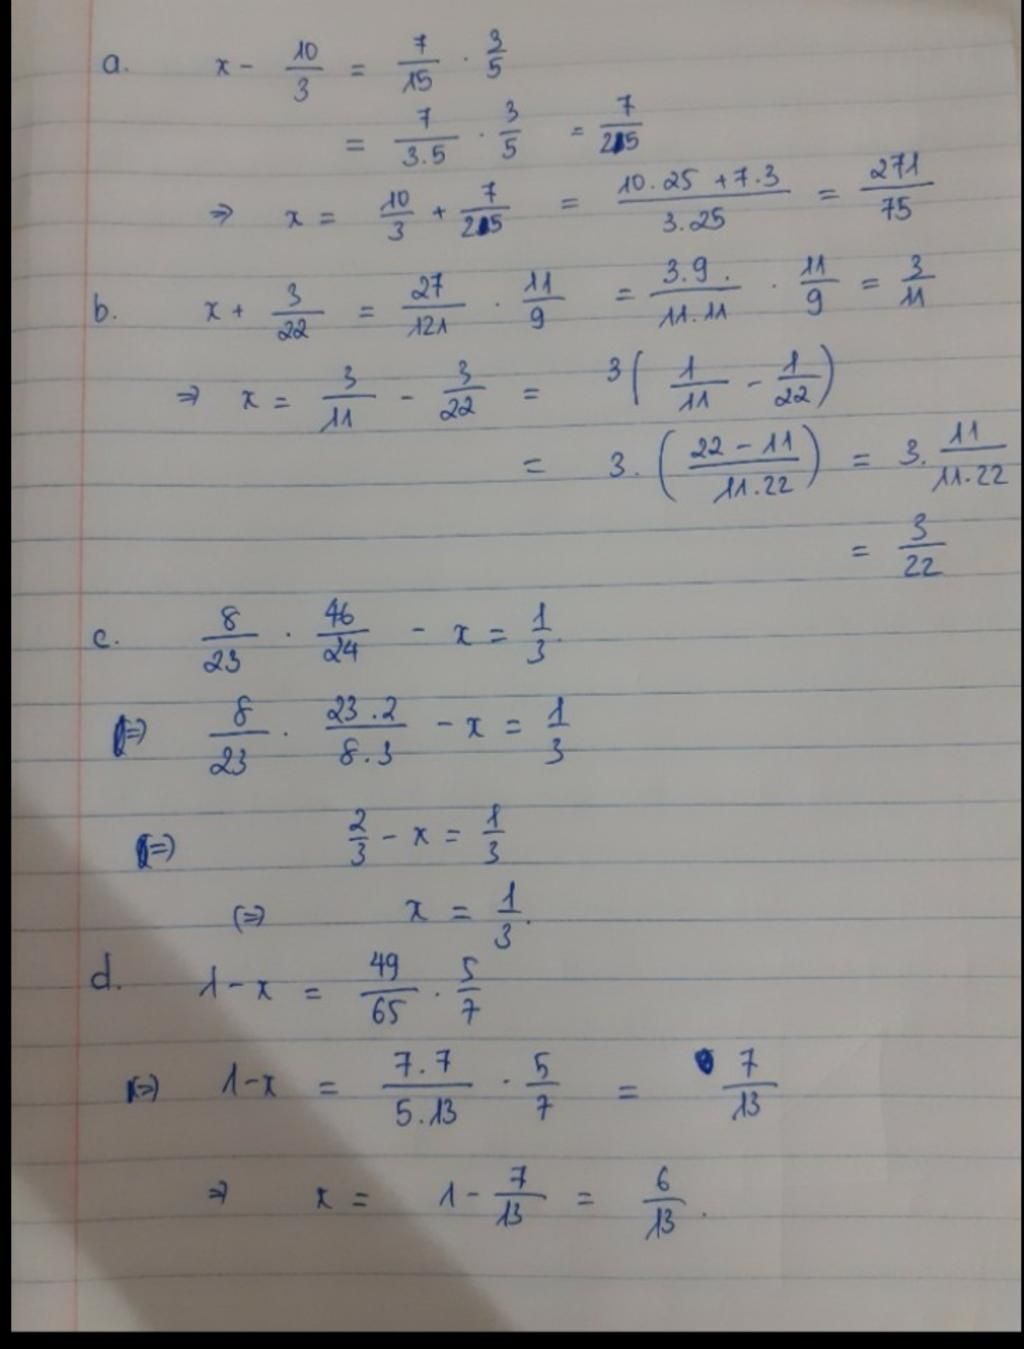 a. x - 10/3 = 7/15 · 3/5
= 7/3.5 · 3/5 = 7/25
⇒ x = 10/3 + 7/25 = (10.25 + 7.3)/3.25 = 271/75
b. x + 3/22 = 27/121 · 11/9 = 3.9./11.11 · 11/9 = 3/11
⇒ x = 3/11 - 3/22 = 3(1/11 - 1/22)
= 3.((22 - 11)/11.22) = 3. 11/11.22
= 3/22
c. 8/23 · 46/24 - x = 1/3.
(=) 8/23 · 23.2/8.3 - x = 1/3
(=) 2/3 - x = 1/3
(=) x = 1/3.
d. 1 - x = 49/65 · 5/7
(=) 1 - x = 7.7/5.13 · 5/7 = 7/13
⇒ x = 1 - 7/13 = 6/13.